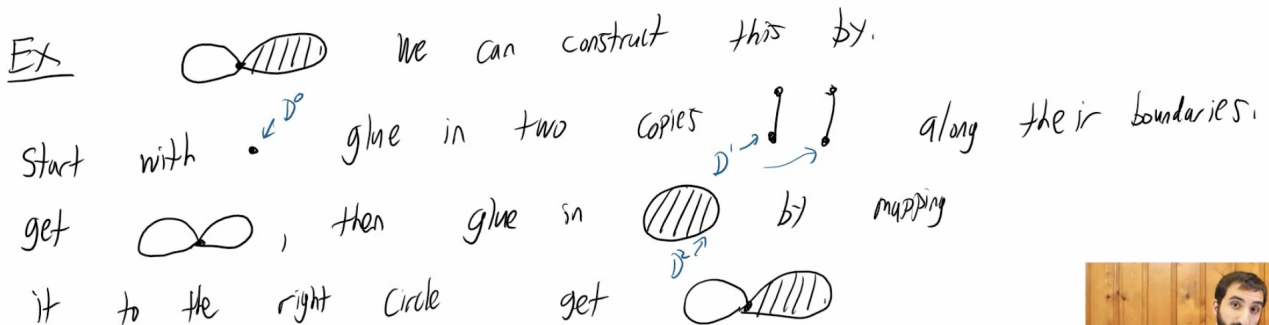 Ex We can construct this by.
D⁰
Start with glue in two copies along their boundaries.
D¹
get , then glue in by mapping
D²
it to the right circle get